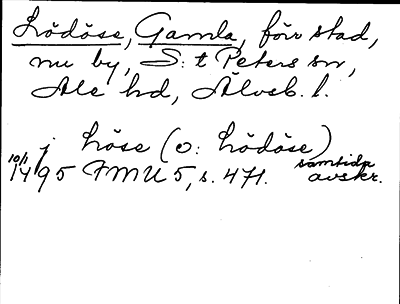 Lödöse, Gamla, förr stad,
nu by, S:t Peters sn,
Ale hd, Älvsb. l.
j Löse (o: Lödöse)
10/1 1495 FMU 5, s. 471. samtida avskr.